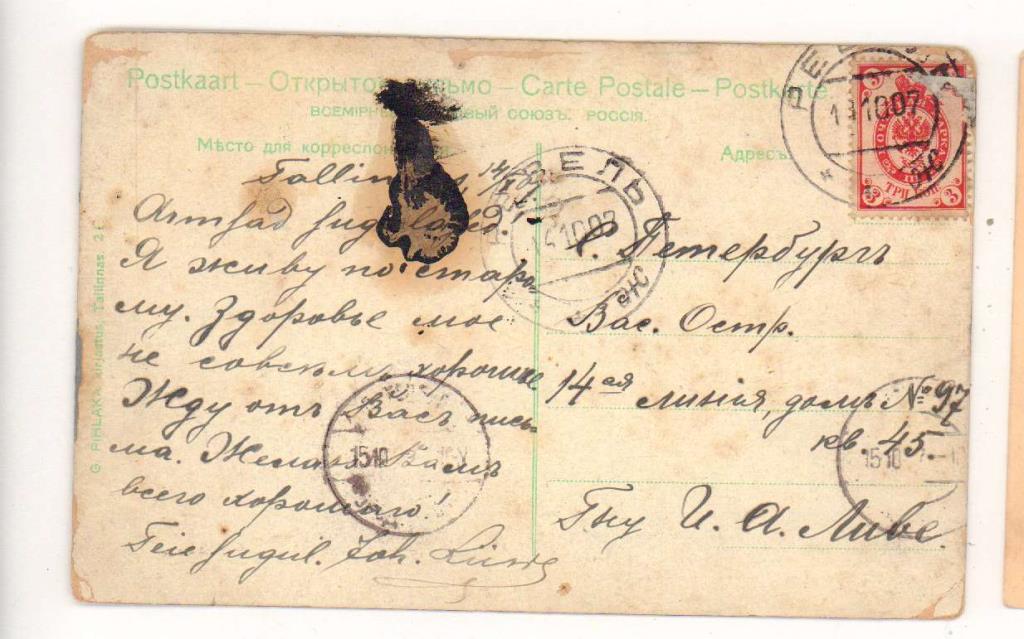 Postkaart – Открытое письмо – Carte Postale – Postkarte
ВСЕМІРНЫЙ ПОЧТОВЫЙ СОЮЗЪ. РОССІЯ.
Мѣсто для корреспон
Адресъ
Tallinn
Armsad sugulased
Я живу по старо
му. Здоровье мое
не совсѣмъ хорошее
Жду отъ Васъ пись
ма. Желаю Вамъ
всего хорошаго!
Teie sugul. Joh.
С. Петербургъ
Вас. Остр.
14ая линія, домъ № 97
кв. 45.
Гну И. А. Ливе.
G. PIHLAKA kirjastus, Tallinnas.
РЕВЕЛЬ
141007
РЕВЕЛЬ
1510
1510
3
3
3
ТРИ КОП